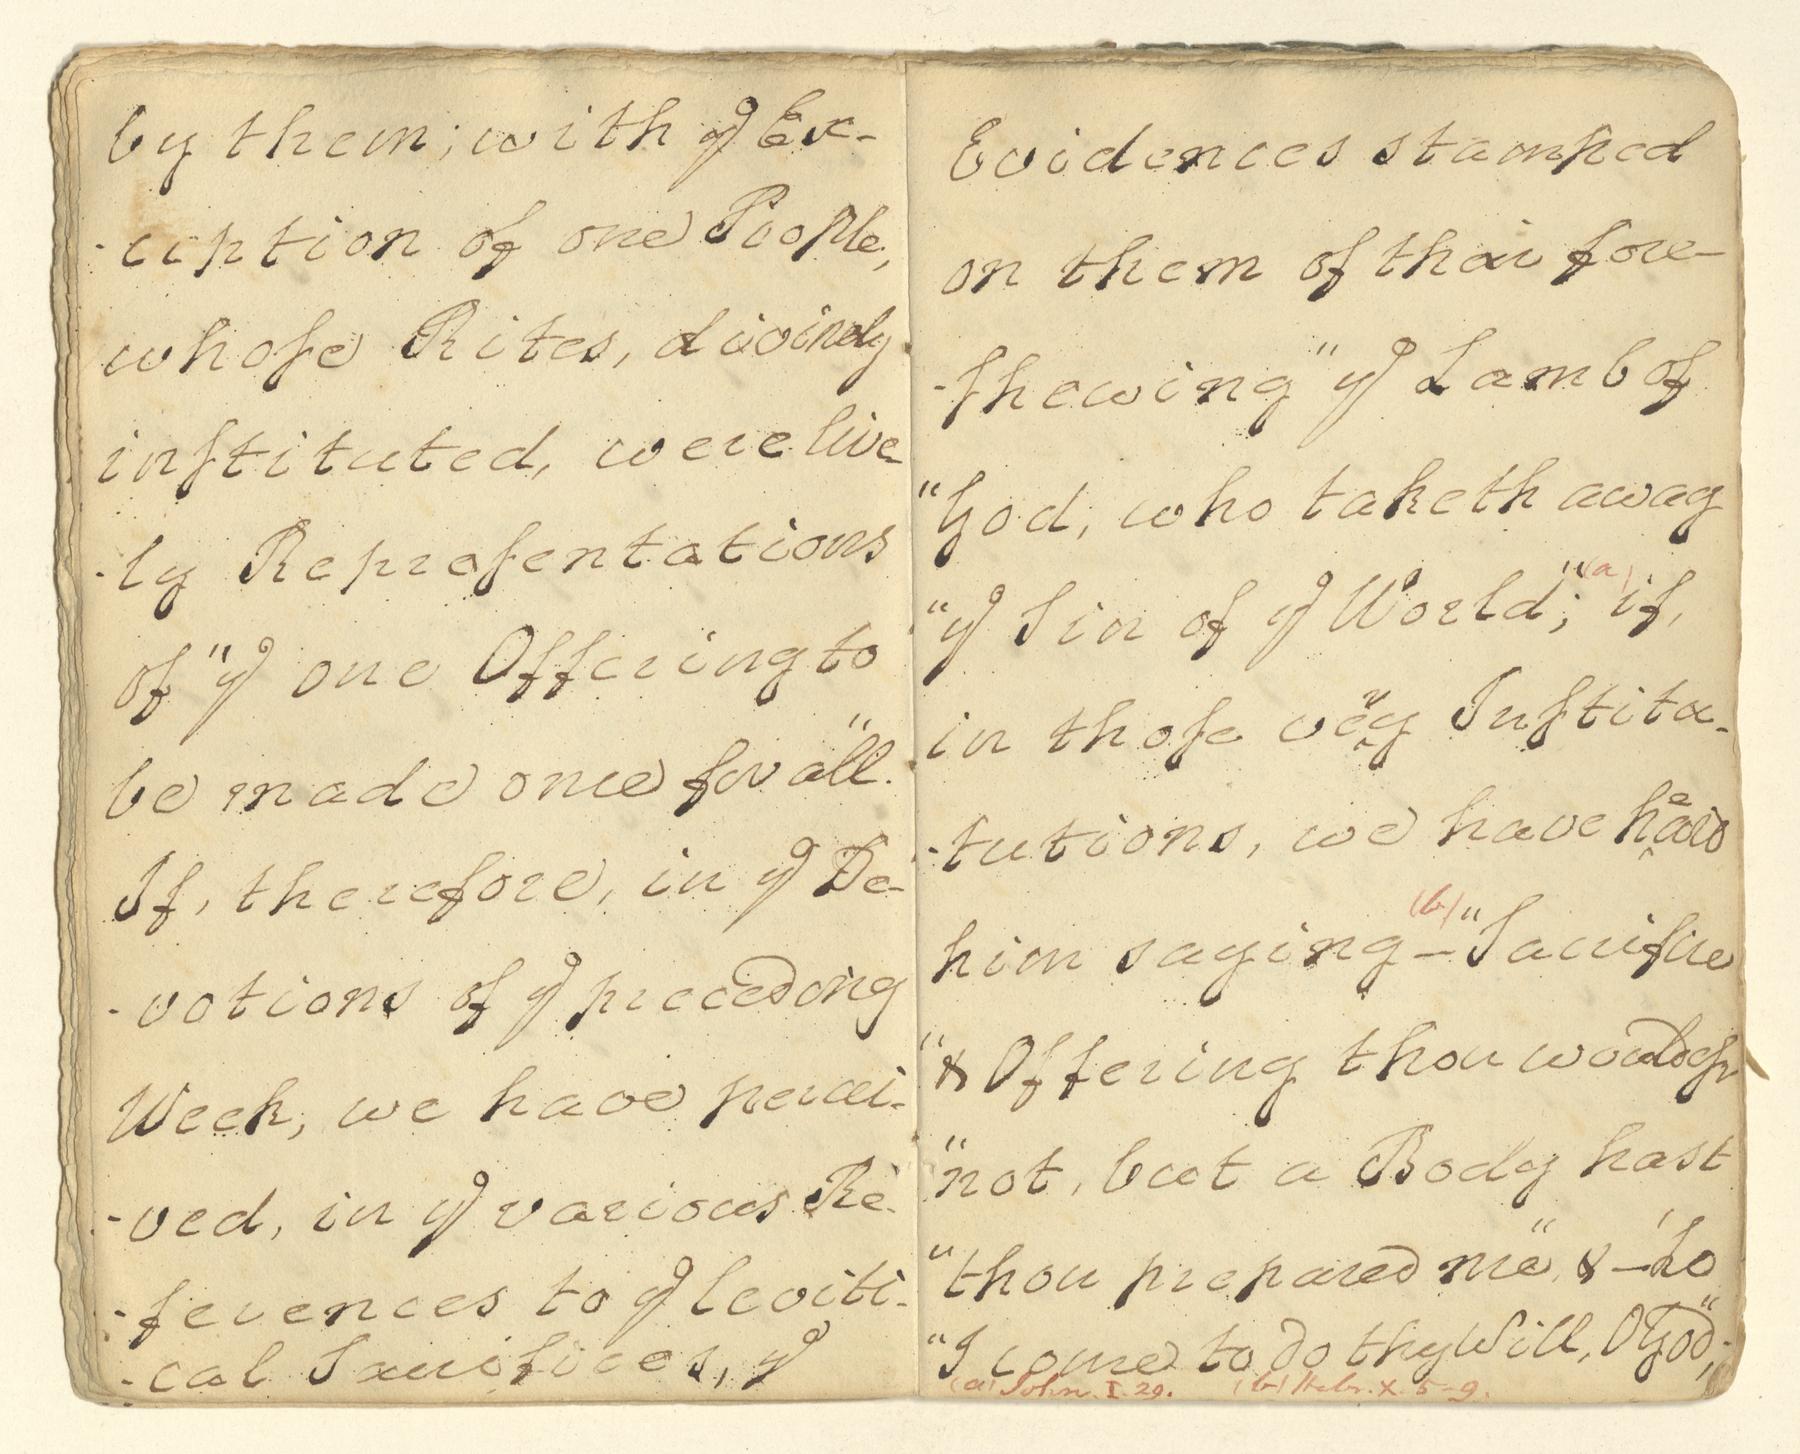 by them; with yͤ Ex-
-ception of one People,
whoſe Rites, divinely
inſtituted, were live-
-ly Repreſentations
of "yͤ one Offering to
be made once for all."
If, therefore, in yͤ De-
-votions of yͤ preceding
Week, we have percei-
-ved, in yͤ various Re-
-ferences to yͤ leviti-
-cal Sacrifices, yͤ
Evidences stamped
on them of their fore-
-ſhewing "yͤ Lamb of
"God, who taketh away
"yͤ Sin of yͤ World;" (a) if,
in thoſe very Inſtitu-
-tutions, we have heard
him saying (b) — "Sacrifice
"& Offering thou wouldeſt
"not, but a Body hast
"thou prepared me" & — 'Lo
"I come to do thy Will, O God;"
(a) John. I. 29. (b) Hebr. X. 5-9.